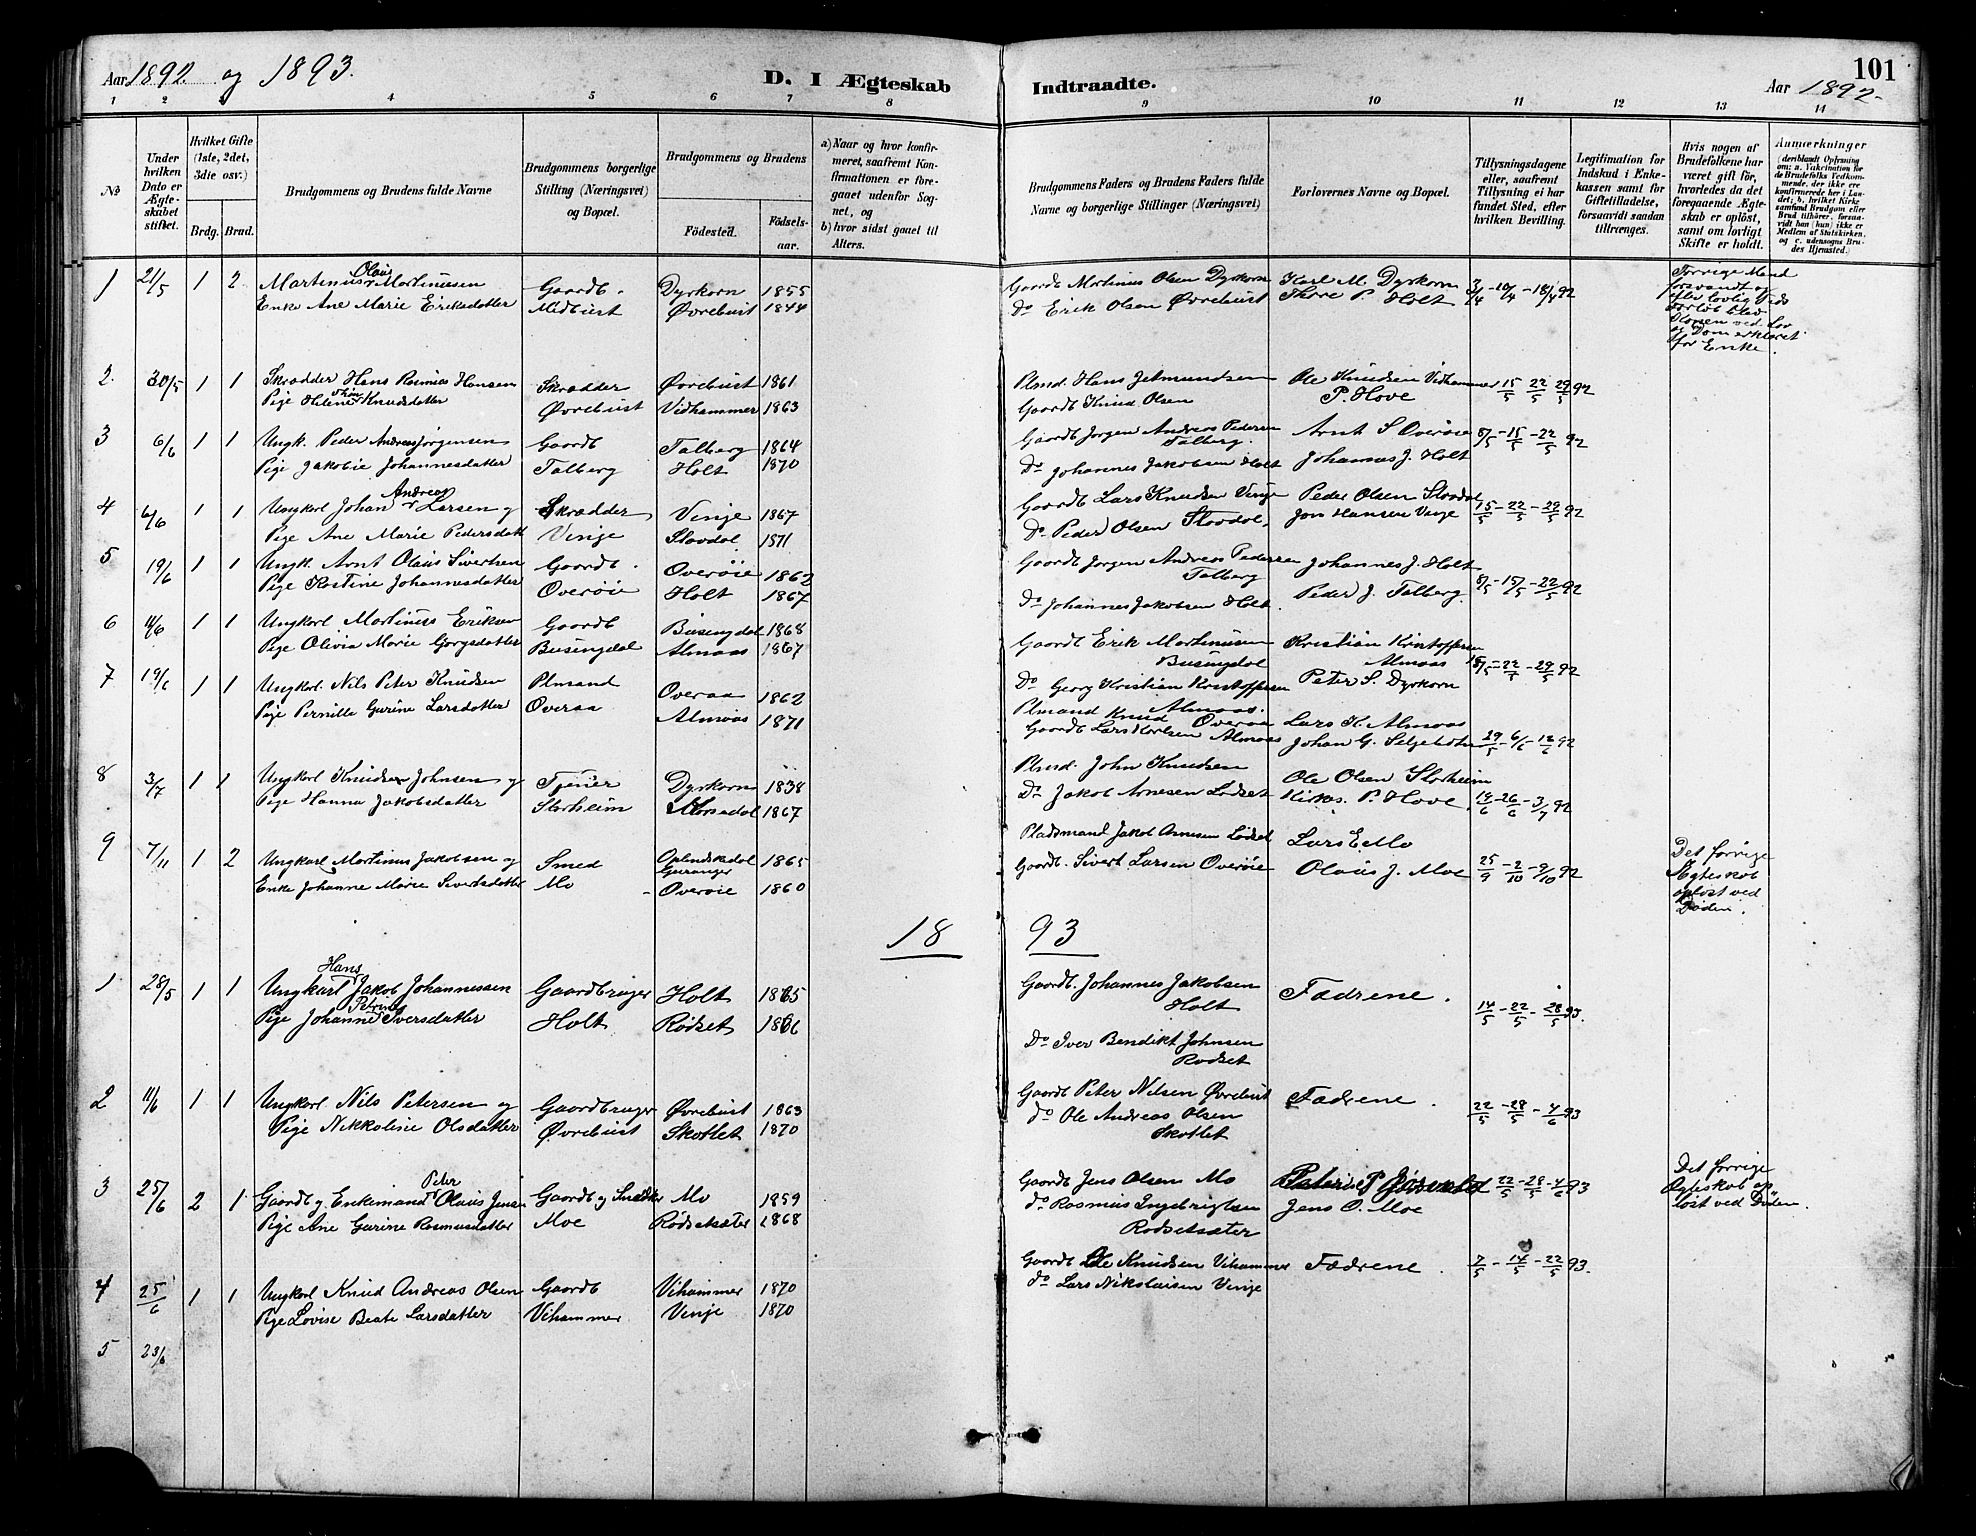 Aar 1892 og 1893.
D. I Ægteskab
Indtraadte.
101
Aar 1892-
1 2 3 4 5 6 7 8 9 10 11 12 13 14
No
Under hvilken Dato er Ægteskabet stiftet.
Hvilket Gifte (1ste, 2det, 3die osv.)
Brdg. Brud.
Brudgommens og Brudens fulde Navne
Brudgommens borgerlige Stilling (Næringsvei) og Bopæl.
Brudgommens og Brudens
Fødested. Fødselsaar.
a) Naar og hvor konfirmeret, saafremt Konfirmationen er foregaaet udenfor Sognet, og
b) hvor sidst gaaet til Alters.
Brudgommens Faders og Brudens Faders fulde Navne og borgerlige Stillinger (Næringsvei)
Forlovernes Navne og Bopæl.
Tillysningsdagene eller, saafremt Tillysning ei har fundet Sted, efter hvilken Bevilling.
Legitimation for Indskud i Enkekassen samt for Giftetilladelse, forsaavidt saadan tiltrænges.
Hvis nogen af Brudefolkene har været gift før, hvorledes da det foregaaende Ægteskab er opløst, samt om lovligt Skifte er holdt.
Anmærkninger
(deriblandt Oplysning om: a. Vakcination for de Brudefolks Vedkommende, der ikke ere konfirmerede her i Landet; b. hvilket Kirkesamfund Brudgom eller Brud tilhører, forsaavidt han (hun) ikke er Medlem af Statskirken, og c. udensogns Brudes Hjemsted.)
1 21/5 1 2 Martinus Olaus Martinussen Gaardb. Dyrkorn 1855 Gaardb Martinus Olsen Dyrkorn Karl M. Dyrkorn 3/4 - 10/4 - 18/4 92
Enke Ane Marie Eriksdatter Midbust Øvrebust 1844 Do Erik Olsen Øvrebust Thore P. Holt
Forrige Mand
forsvandt og
efter lovlig Tids
Forløb blev
Konen ved Lov
og Dom erklæret
for Enke.
2. 30/5 1 1 Skrædder Hans Rasmus Hansen Skrædder Øvrebust 1861 Plmd. Hans Jetmundsen Ole Knudsen Vidhammer 15/5 22/5 29/5 92
Pige Helene Knudsdatter Øvrebust Vidhammer 1863 Gaardb Knud Olsen P. Hove
3 6/6 1 1 Ungk. Peder Andreas Jørgensen Gaardb Talberg 1864 Gaardb Jørgen Andreas Pedersen Talberg. Arnt S Overøie 8/5 - 15/5 - 22/5 92
Pige Jakobie Johannesdatter Talberg Holt 1870 Do Johannes Jakobsen Holt Johannes J. Holt
4 6/6 1 1 Ungkarl Johan Andreas Larsen og Skrædder Vinje 1867 Gaardb Lars Knudsen Vinje Peder Olsen Stavdal 15/5 - 22/5 - 29/5 92
Pige Ane Marie Pedersdatt Vinje Stavdal 1871 Do Peder Olsen Stavdal. Jon Hansen Vinje
5 19/6 1 1 Ungk. Arnt Olaus Sivertsen Gaardb. Overøie 1862 Gaardb Jørgen Andreas Pedersen Talberg Johannes J. Holt 8/5 - 15/5 - 22/5 92
Pige Kastine Johannesdatter Overøie Holt 1867 Do Johannes Jakobsen Holt. Peder J. Talberg.
6 1 1 Ungkarl Martinus Eriksen Gaardb Busengdal 1868 Gaardb Erik Martinusen Busengdal Kristian Kristoffersen Almaas 15/5 - 22/5 - 29/5 92
Pige Olivia Marie Gorgsdatter Busengdal Almaas 1867 Do Georg Kristian Kristoffersen Almaas. Peter S. Dyrkorn
7 19/6 1 1 Ungkarl. Nils Peter Knudsen Plmand Overaa 1862 Plmand Knud Overaa Lars K. Almaas 29/5 - 6/6 - 12/6 92
Pige Pernille Gurine Larsdatter Overaa Almaas 1871 Gaardb Lars Karlsen Almaas Johan G.
8 3/7 1 1 Ungkarl Knudsen Johnsen og Tjener Dyrkorn 1838 Plmd. John Knudsen Ole Olsen Storheim 19/6 - 26/6 - 3/7 92
Pige Hanna Jakobsdatter Storheim 1867 Do Jakob Arnesen Lødset Kirkes. P. Hove
9 7/11 1 2 Ungkarl Martinus Jakobsen og Smed Oplendskedal Geiranger 1865 Pladsmand Jakob Arnesen Lødset Lars E Mo 25/9 - 2/10 - 9/10 92
Enke Johanne Marie Sivertsdatter Mo - Overøie 1860 Gaardb. Sivert Larsen Overøie Olaus J. Moe
Det forrige
Ægteskab
opløst ved
Døden.
18 93
1 28/5 1 1 Ungkarl Hans Jakob Johannessen Gaardbruger Holt 1865 Gaardb. Johannes Jakobsen Holt Fædrene. 14/5 - 22/5 - 28/5 93.
Pige Johanne Petrine Iversdatter Holt Rødset 1866 Do Iver Bendikt Johnsen Rødset
2 11/6 1 1 Ungkarl. Nils Petersen og Gaardbruger Øvrebust 1863 Gaardb Peter Nilsen Øvrebust Fædrene. 22/5 - 28/5 - 4/6 93
Pige Nikkoline Olsdatter Øvrebust Skotlet 1870 do Ole Andreas Olsen Skotlet
3 25/6 2 1 Gaardb og Enkemand Peter Olaus Jensen Gaardb og Snedker Mo 1859 Gaardb Jens Olsen Mo 22/5 - 28/5 - 4/6 93
Pige Ane Gurine Rasmusdatter Moe Rødsetsæter 1868 do Rasmus Ingebrigtsen Rødsetsæter Jens O. Moe
Det forrige
Ægteskab op
løst ved Døden.
4 25/6 1 1 Ungkarl Knud Andreas Olsen Gaardb Vihammer 1870 Gaardb Ole Knudsen Vihammer Fædrene. 7/5 - 14/5 - 22/5 93.
Pige Lovise Beate Larsdatter Vihammer Venje 1870 do Lars Nikolaisen Vinje
5 23/6